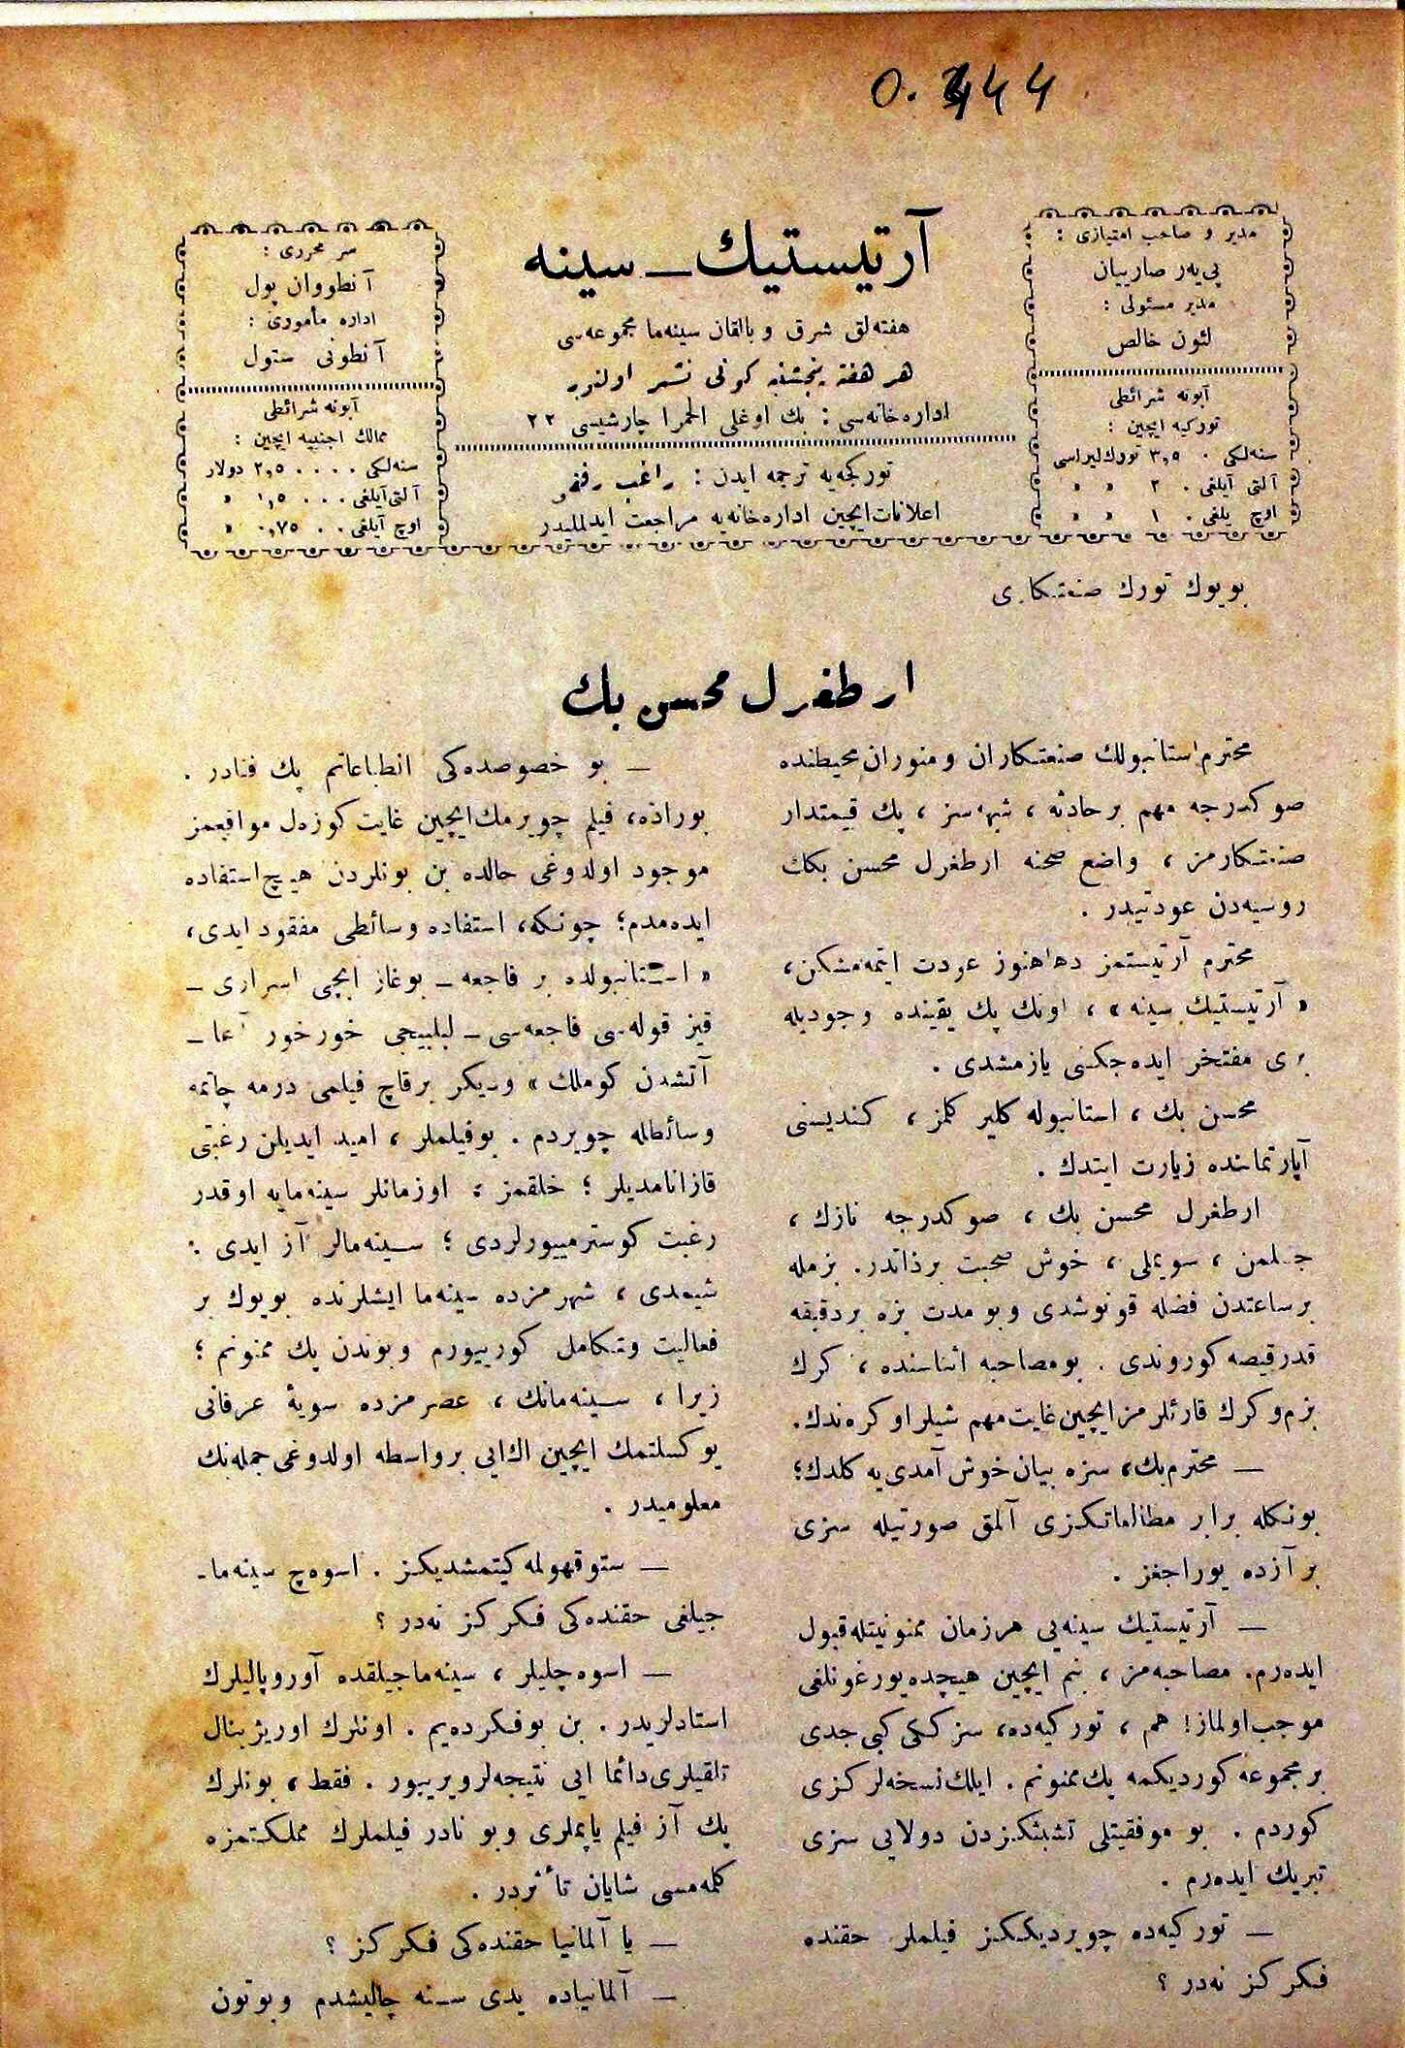 0. 444
مدير و صاحب امتيازى :
پى‌يەر صارييان
مدير مسئولى :
لئون خالص
آبونه شرائطى
توركيه ايچين :
سنه‌لكى . ٣,٥ تورك‌ليراسى
آلتى آيلغى . ٢ » »
اوچ يلغى . ١ » »
آرتيستيك ـ سينه
هفته‌لق شرق و بالقان سينه‌ما مجموعه‌سى
هر هفته پنجشنبه كونى نشر اولنور
اداره‌خانه‌سى : بك اوغلى الحمرا چارشيسى ٢٢
توركجه‌يه ترجمه ايدن : راغب رفقى
اعلانات ايچين اداره‌خانه‌يه مراجعت ايدلمليدر
سر محررى :
آنطووان پول
اداره مأمورى :
آنطونى ستول
آبونه شرائطى
ممالك اجنبيه ايچين :
سنه‌لكى . . . . ٢,٥ دولار
آلتى آيلغى . . . ١,٥ »
اوچ آيلغى . . ٠,٧٥ »
بويوك تورك صنعتكارى
ارطغرل محسن بك
محترم استانبولك صنعتكاران و منوران محيطنده
صوكدرجه مهم بر حادثه ، شبهه‌سز ، پك قيمتدار
صنعتكارمز ، واضع صحنه ارطغرل محسن بكك
روسيه‌دن عودتيدر .
محترم آرتيستمز دها هنوز عودت ايتمه‌مشكن،
« آرتيستيك سينه » ، اونك پك يقينده وجوديله
بزى مفتخر ايده‌جكنى يازمشدى .
محسن بك ، استانبوله كلير كلمز ، كنديسنى
آپارتماننده زيارت ايتدك .
ارطغرل محسن بك ، صوكدرجه نازك ،
جنتلمن ، سويملى ، خوش صحبت بر ذاتدر. بزمله
بر ساعتدن فضله قونوشدى و بو مدت بزه بر دقيقه
قدر قيصه كوروندى . بو مصاحبه اثناسنده ، كرك
بزم و كرك قارئلرمز ايچين غايت مهم شيلر اوكره‌ندك.
ـ محترم بك، سزه بيان خوش آمدى‌يه كلدك؛
بونكله برابر مطالعاتكزى آلمق صورتيله سزى
بر آزده يوراجغز .
ـ آرتيستيك سينه‌يى هر زمان ممنونيتله قبول
ايده‌رم. مصاحبه‌مز ، بنم ايچين هيچده يورغونلغى
موجب اولماز! هم ، توركيه‌ده، سزككى كبى جدى
بر مجموعه كورديكمه پك ممنونم . ايلك نسخه‌لركزى
كوردم . بو موفقيتلى تشبثكزدن دولايى سزى
تبريك ايده‌رم .
ـ توركيه‌ده چويرديككز فيلملر حقنده
فكركز نه‌در ؟
ـ بو خصوصده‌كى انطباعاتم پك فنادر .
بوراده، فيلم چويرمك ايچين غايت كوزه‌ل مواقعمز
موجود اولدوغى حالده بن بونلردن هيچ استفاده
ايده‌مدم؛ چونكه، استفاده وسائطى مفقود ايدى،
« استانبولده بر فاجعه ـ بوغاز ايچى اسرارى ـ
قيز قوله‌سى فاجعه‌سى ـ لبلبيجى خورخور آغا ـ
آتشدن كوملك » و ديكر بر قاچ فيلمى درمه چاتمه
وسائطله چويردم . بو فيلملر ، اميد ايديلن رغبتى
قازانامديلر ؛ خلقمز ؛ اوزمانلر سينه‌مايه اوقدر
رغبت كوسترمييورلردى ؛ سينه‌مالر آز ايدى ؛
شيمدى ، شهرمزده سينه‌ما ايشلرنده بويوك بر
فعاليت و تكامل كورييورم و بوندن پك ممنونم ؛
زيرا ، سينه‌مانك ، عصرمزده سويۀ عرفانى
يوكسلتمك ايچين اك ايى بر واسطه اولدوغى جمله‌نك
معلوميدر .
ـ ستوقهولمه كيتمشديكز . اسوه‌چ سينه‌ما-
جيلغى حقنده‌كى فكركز نه‌در ؟
ـ اسوه‌چليلر ، سينه‌ماجيلقده آوروپاليلرك
استادلريدر . بن بو فكرده‌يم . اونلرك اوريژينال
تلقيلرى دائما ايى نتيجه‌لر ويرييور . فقط ، بونلرك
پك آز فيلم ياپملرى و بو نادر فيلملرك مملكتمزه
كلمه‌مسى شايان تأثردر .
ـ يا آلمانيا حقنده‌كى فكركز ؟
ـ آلمانياده يدى سنه چاليشدم و بوتون